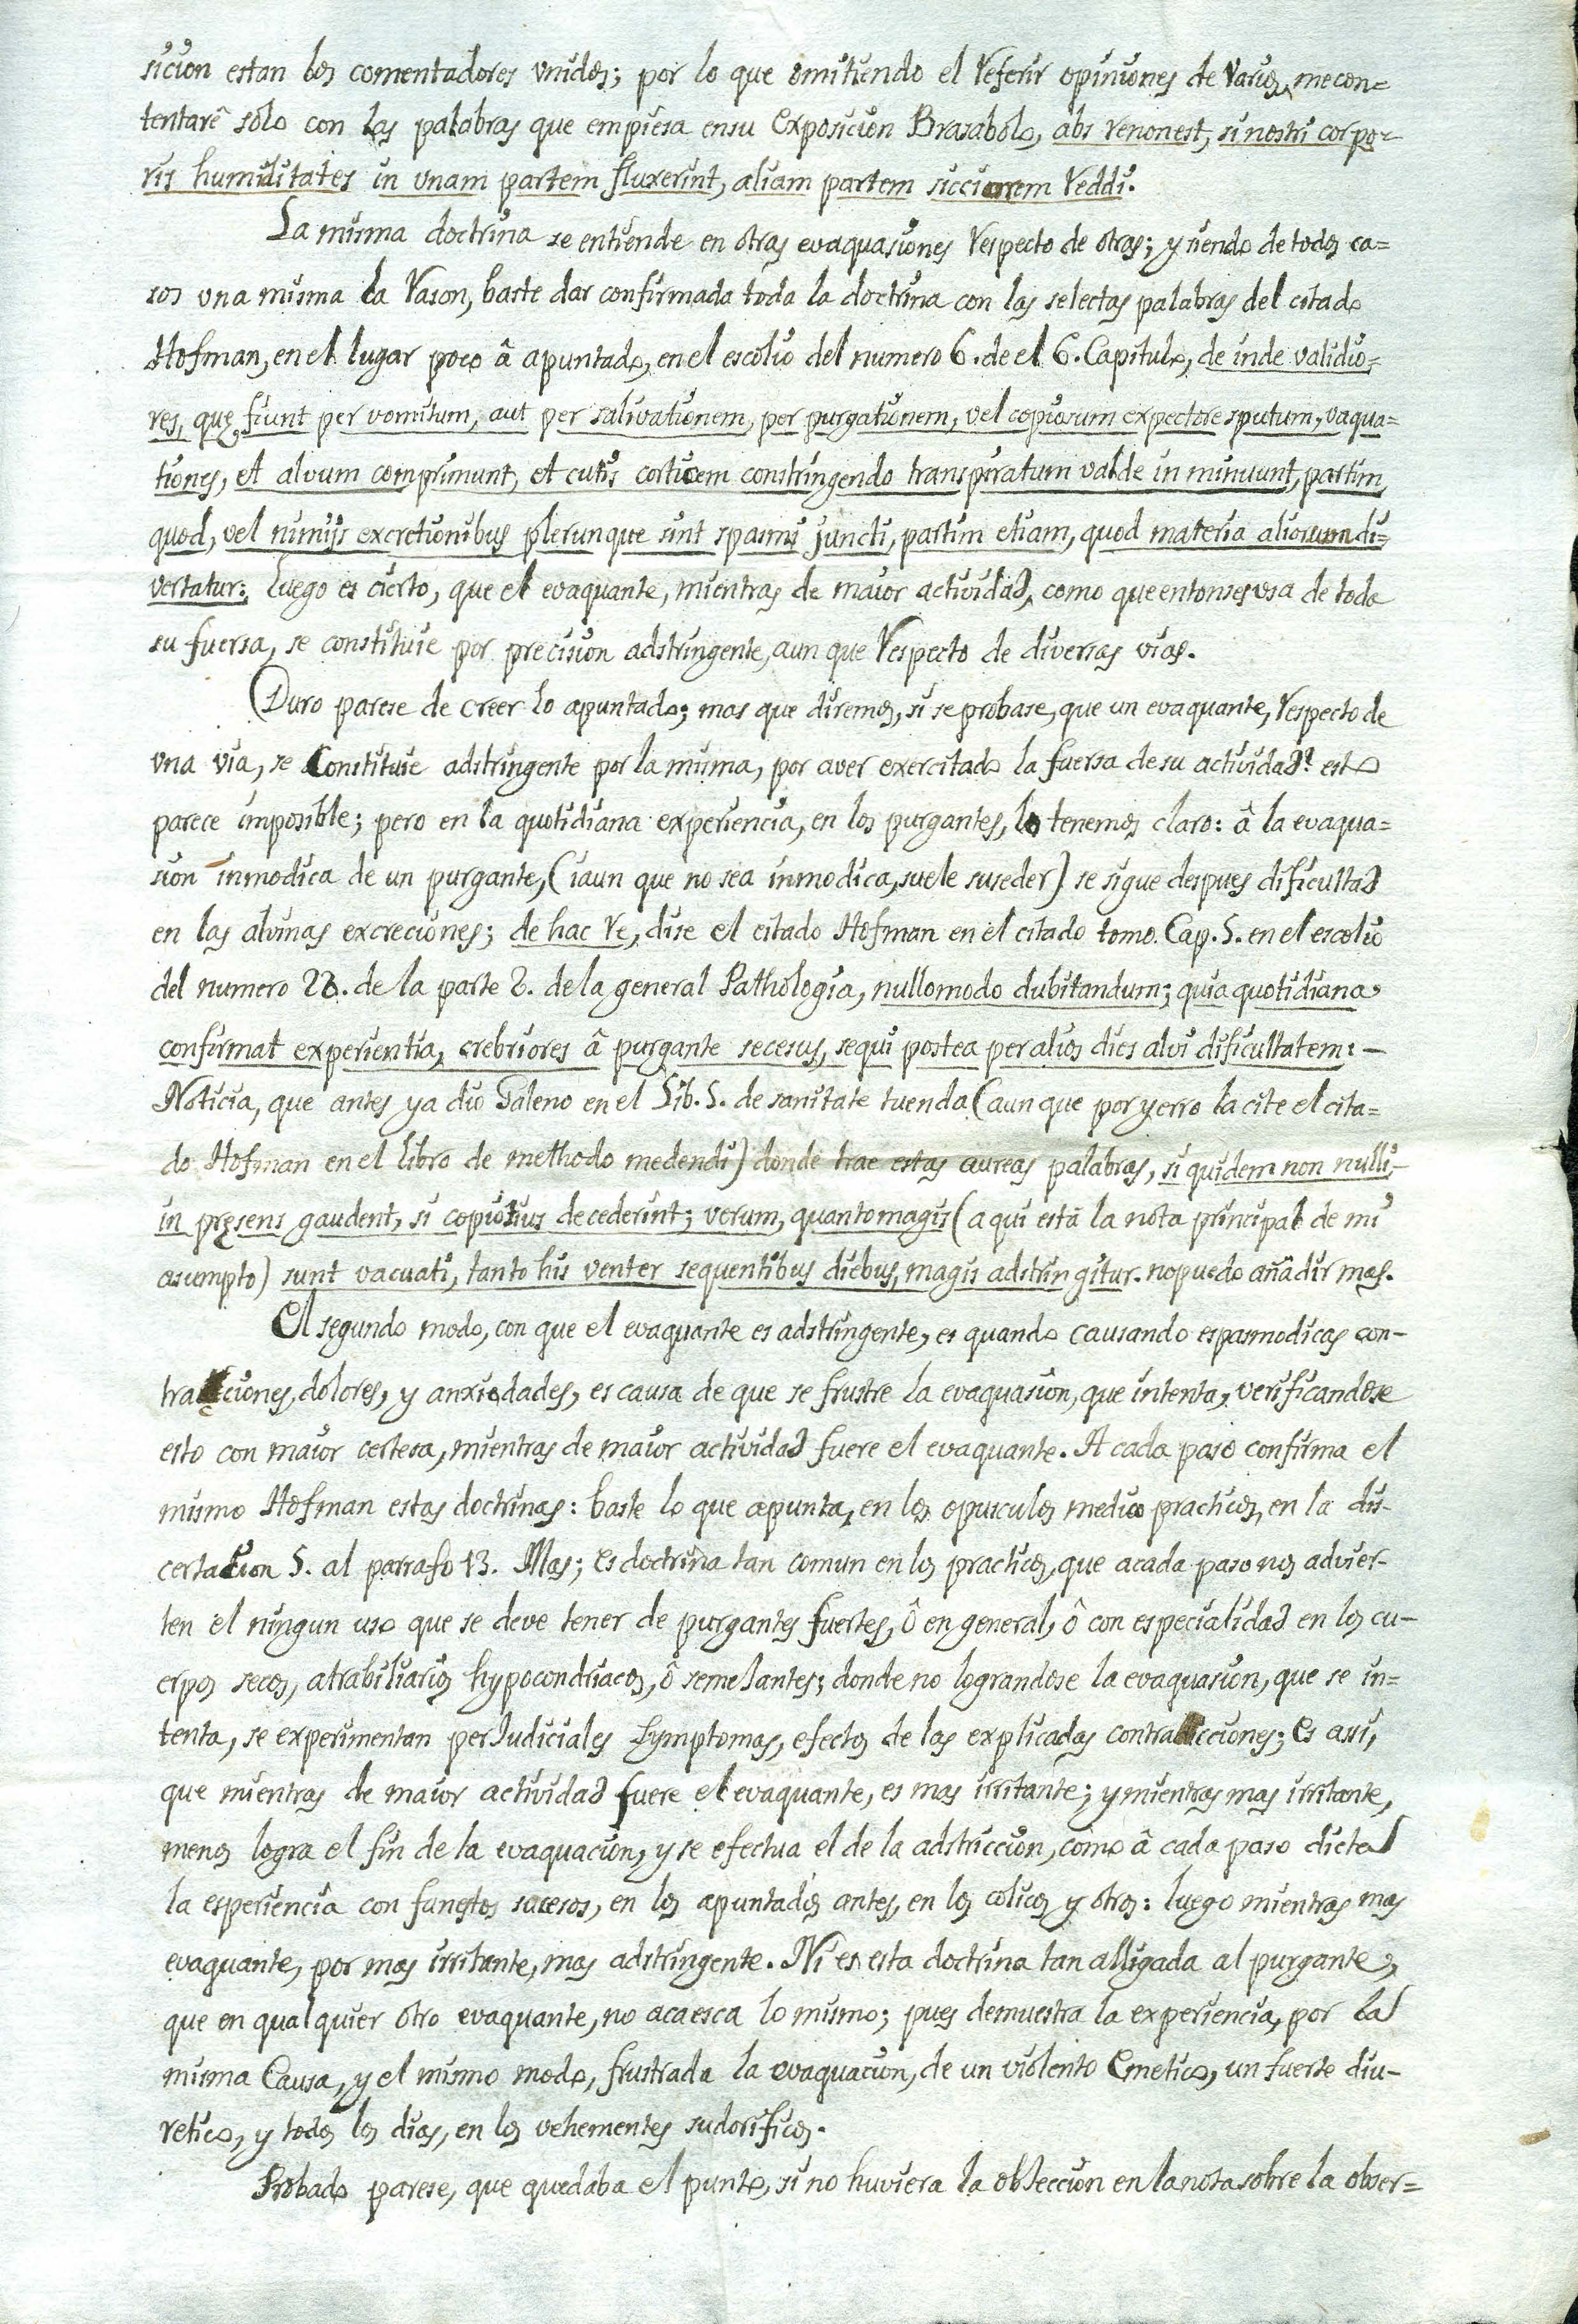 sicion estan los comentadores vnidos; por lo que omitiendo el referir opiniones de varios, me con=
tentarê sólo con las palabras que empiesa en su exposicion Brasabolo, abs re non est, si nostri corpo=
ris humiditates in vnam partem fluxerint, aliam partem sicciorem reddi.
La misma doctrina se entiende en otras evaquasiones respecto de otras; y siendo de todos ca=
sos vna misma la rason, baste dar confirmada toda la doctrina con las selectas palabras del citado
Hofman, en el lugar poco â apuntado, en el escolio del numero 6. de el 6. Capitulo, de inde validio=
res, quę fiunt per vomitum, aut per salivationem, per purgationem, vel copiosum expectore sputum, vaqua=
tiones, et alvum comprimunt, et cutis corticem constringendo transpiratum valde in minuunt, partim,
quod, vel nimijs excretionibus plerunque sint spasmi juncti, partim etiam, quod materia aliorum di=
vertatur: luego es cierto, que el evaquante, mientras de maior actividad, como que entonses vsa de toda
su fuersa, se constituie por precision adstringente, aun que respecto de diversas vias.
Duro parese de creer lo apuntado; mas que diremos, si se probase, que un evaquante, respecto de
vna via, se constituie adstringente por la misma, por aver exercitado la fuersa de su actividad? esto
parece imposible; pero en la quotidiana experiencia, en los purgantes, lo tenemos claro: â la evaqua=
sion inmodica de un purgante, (i aun que no sea inmodica, suele suseder) se sigue despues dificultad
en las alvinas excreciones; de hac re, dise el citado Hofman en el citado tomo. Cap. 5. en el escolio
del numero 28. de la parte 2. de la general Pathologia, nullomodo dubitandum; quia quotidiana
confirmat experientia, crebriores â purgante secesus, sequi postea per alios dies alvi dificultatem: —
Noticia, que antes ya dio Galeno en el Lib. 5. de sanitate tuenda (aun que por yerro la cite el cita=
do Hofman en el libro de methodo medendi) donde trae estas aureas palabras, si quidem non nulli,
in pręsens gaudent, si copiosius decederint; verum, quanto magis (a qui está la nota principal de mi
asumpto) sunt vacuati, tanto his venter sequentibus diebus, magis adstringitur. no puedo añadir mas.
El segundo modo, con que el evaquante es adstringente, es quando causando espasmodicas con-
tracciones, dolores, y anxiedades, es causa de que se frustre la evaquasion, que intenta, verificandose
esto con maior certesa, mientras de maior actividad fuere el evaquante. A cada paso confirma el
mismo Hofman estas doctrinas: baste lo que apunta, en los opusculos medico practicos, en la dis-
certacion 5. al parrafo 13. Mas; es doctrina tan comun en los practicos, que a cada paso nos advier-
ten el ningun uso que se deve tener de purgantes fuertes, ô en general, ô con especialidad en los cu-
erpos secos, atrabiliarios hypocondriacos, ô semeJantes; donde no lograndose la evaquasion, que se in=
tenta, se experimentan perJudiciales symptomas, efectos de las explicadas contracciones; es assi,
que mientras de maior actividad fuere el evaquante, es mas irritante; y mientras mas irritante,
menos logra el fin de la evaquacion, y se efectua el de la adstriccion, como â cada paso dicta
la esperiencia con funestos sucesos, en los apuntados antes, en los colicos y otros: luego mientras mas
evaquante, por mas irritante, mas adstringente. Ni es esta doctrina tan alligada al purgante,
que en qualquier otro evaquante, no acaesca lo mismo; pues demuestra la experiencia, por la
misma causa, y el mismo modo, frustrada la evaquacion, de un violento Emetico, un fuerte diu-
retico, y todos los dias, en los vehementes sudorificos.
Probado parese, que quedaba el punto, si no huviera la obJeccion en la nota sobre la obser=